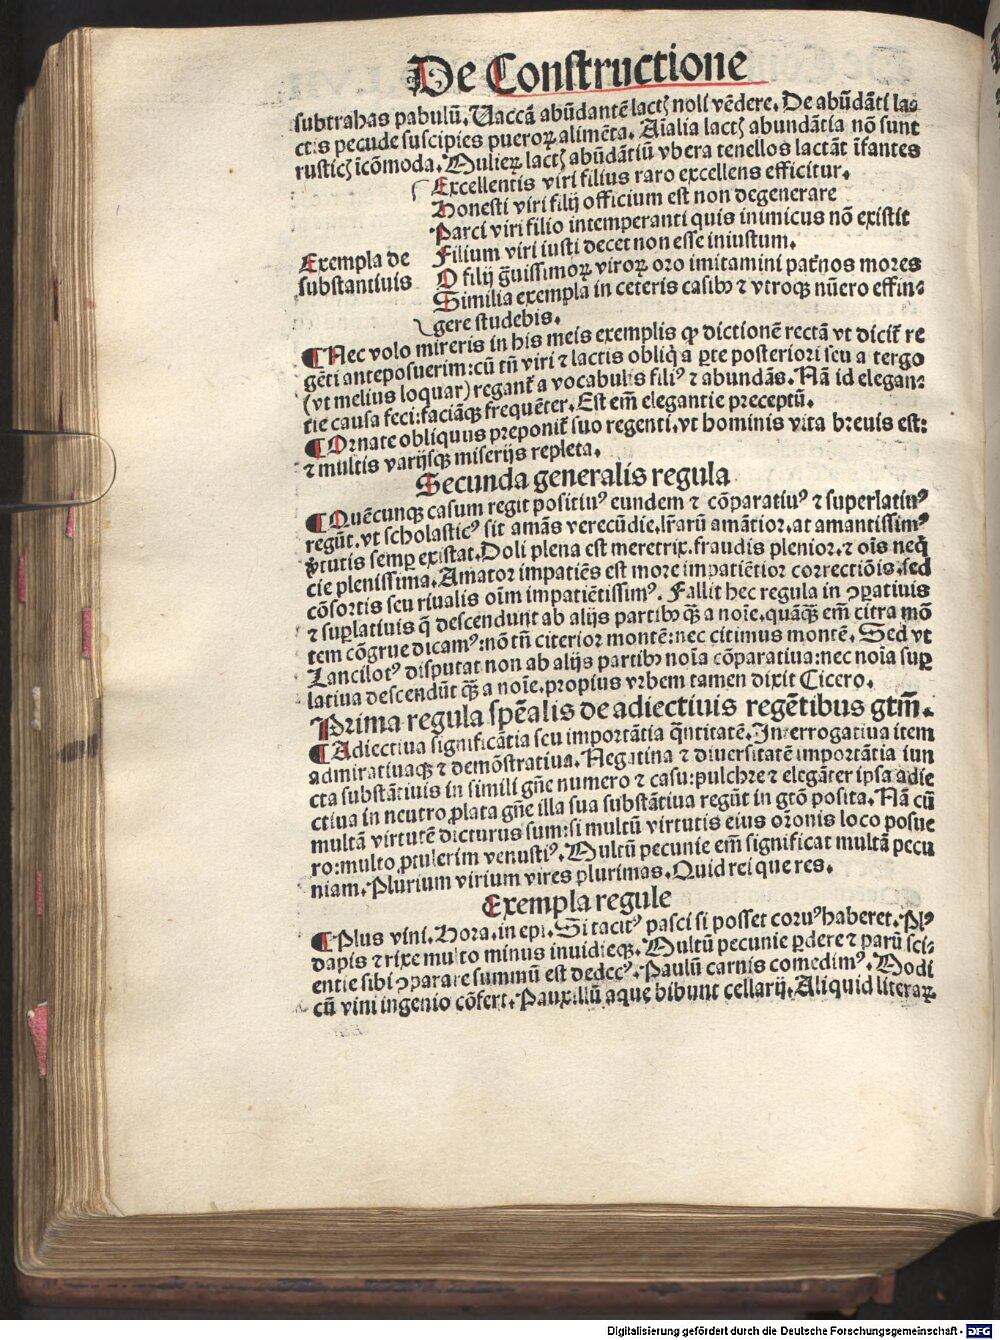 De Constructione
subtrahas pabulū. Vaccā abūdantē lactꝭ noli vēdere. De abūdāti la⸗
ctis pecude suscipies pueroꝝ alimēta. Aīalia lactꝭ abundātia nō sunt
rusticꝭ īcōmoda. Mulieꝝ lactꝭ abūdātiū vbera tenellos lactāt īfantes
Excellentis viri filius raro excellens efficitur.
Honesti viri filij officium est non degenerare
Parci viri filio intemperanti quis inimicus nō existit
Exempla de
substantiuis
Filium viri iusti decet non esse iniustum.
O filij ḡuissimoꝝ viroꝝ oro imitamini pat̄nos mores
Similia exempla in ceteris casibꝰ ⁊ vtroqꝫ nūero effin⸗
gere studebis.
¶ Nec volo mireris in his meis exemplis ꝙ dictionē rectā vt dicit̄ re
gēti anteposuerim: cū tn̄ viri ⁊ lactis obliq̄ a ꝑte posteriori seu a tergo
(vt melius loquar) regant̄ a vocabulis filiꝰ ⁊ abundās. Nā id elegan⸗
tie causa feci: faciāqꝫ frequēter. Est em̄ elegantie preceptū.
¶ Ornate obliquus preponit̄ suo regenti. vt hominis vita breuis est:
⁊ multis varijsqꝫ miserijs repleta.
Secunda generalis regula
¶ Quēcunqꝫ casum regit positiuꝰ eundem ⁊ cōparatiuꝰ ⁊ superlatiuꝰ
regūt. vt scholasticꝰ sit amās verecūdie. lr̄arū amātior. at amantissimꝰ
v̄tutis semꝑ existat. Doli plena est meretrix. fraudis plenior. ⁊ oīs neq̄
cie plenissima. Amator impatiēs est more impatiētior correctiōis. sed
cōsortis seu riualis oīm impatiētissimꝰ. Fallit hec regula in ꝯꝑatiuis
⁊ suꝑlatiuis q̄ descendunt ab alijs partibꝰ qꝫ̄ a noīe. quāqꝫ em̄ citra mō
tem cōgrue dicamꝰ: nō tn̄ citerior montē: nec citimus montē. Sed vt
Lancilotꝰ disputat non ab alijs partibꝰ noīa cōparatiua: nec noīa suꝑ
latiua descendūt qꝫ̄ a noīe. propius vrbem tamen dixit Cicero.
Prima regula spēalis de adiectiuis regētibus gtm̄.
¶ Adiectiua significātia seu importātia q̄ntitatē. Interrogatiua item
admiratiuaqꝫ ⁊ demōstratiua. Negatiua ⁊ diuersitatē importātia iun
cta substātiuis in simili gn̄e numero ⁊ casu: pulchre ⁊ elegāter ipsa adie
ctiua in neutro ꝓlata gn̄e illa sua substātiua regūt in gtō posita. Nā cū
multā virtutē dicturus sum: si multū virtutis eius or̄onis loco posue
ro: multo ꝓtulerim venustiꝰ. Multū pecunie em̄ significat multā pecu
niam. Plurium virium vires plurimas. Quid rei que res.
Exempla regule
¶ Plus vini. Hora. in epi. Si tacitꝰ pasci si posset coruꝰ haberet. Plꝰ
dapis ⁊ rixe multo minus inuidieqꝫ. Multū pecunie ꝑdere ⁊ parū sci⸗
entie sibi ꝯparare summū est dedecꝰ. Paulū carnis comedimꝰ. Modi
cū vini ingenio cōfert. Pauxillū aque bibunt cellarij. Aliquid literaꝝ
Digitalisierung gefördert durch die Deutsche Forschungsgemeinschaft - DFG